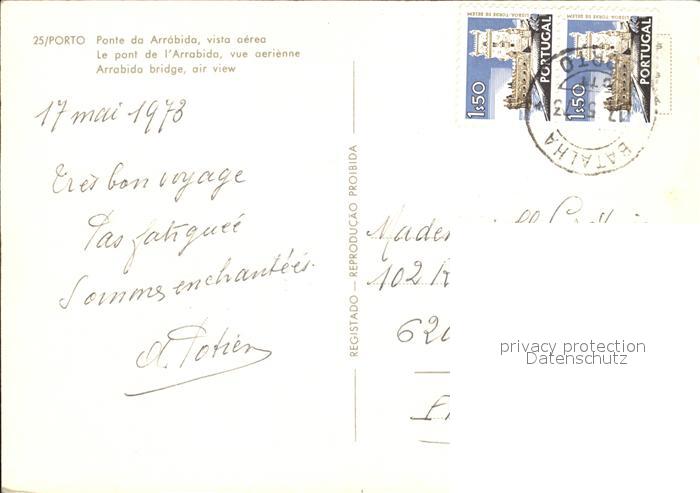 25/PORTO Ponte da Arrábida, vista aérea
Le pont de l'Arrabida, vue aeriènne
Arrabida bridge, air view
17 mai 1973
Très bon voyage
Pas fatiguée
Sommes enchantées.
REGISTADO — REPRODUÇÃO PROIBIDA
LISBOA-TORRE DE BELEM
PORTUGAL
1$50
LISBOA-TORRE DE BELEM
PORTUGAL
1$50
BATALHA
PORTO
102
privacy protection
Datenschutz